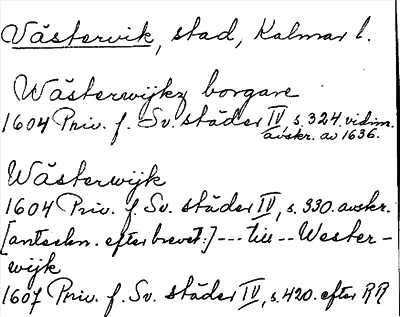 Västervik, stad, Kalmar l.
Wästerwijkz borgare
1604 Priv. f. Sv. städer IV s. 324. vidim.
avskr. av 1636.
Wästerwijk
1604 Priv. f. Sv. städer IV, s. 330. avskr.
[anteckn. efter brevet:] --- till -- Wester-
wijk
1607 Priv. f. Sv. städer IV, s. 420. efter RR